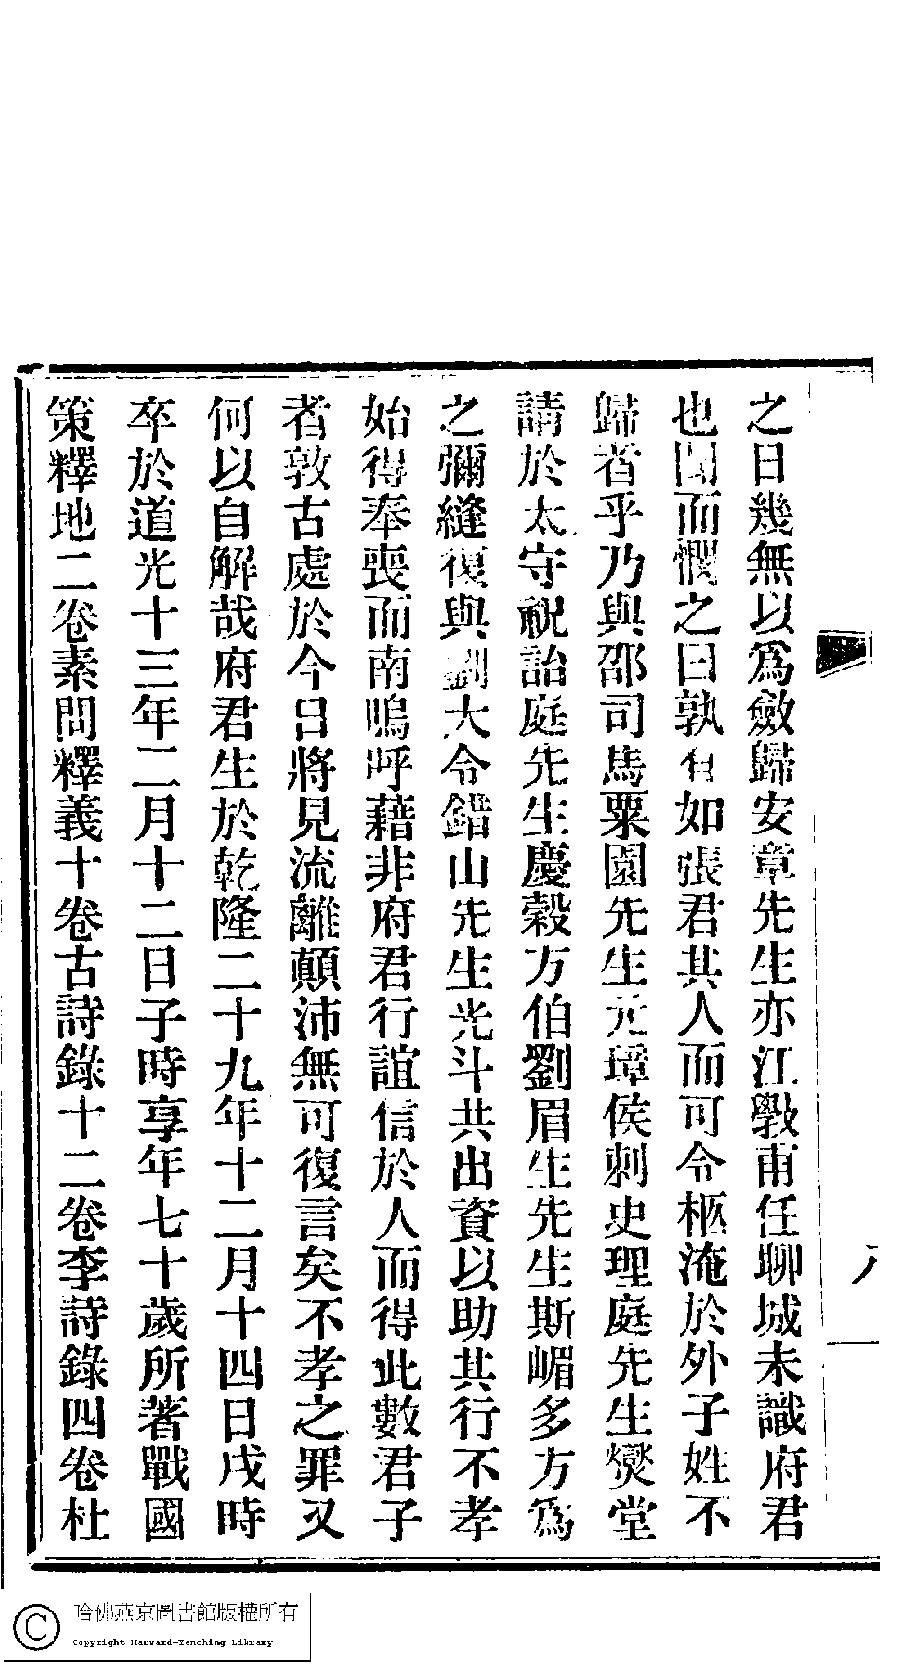 之日幾無以爲斂歸安章先生亦江斅甫任聊城未識府君
也聞而憫之曰孰有如張君其人而可令柩淹於外子姓不
歸者乎乃與邵司馬粟園先生元璋侯刺史理庭先生燮堂
請於太守祝詒庭先生慶穀方伯劉眉生先生斯嵋多方爲
之彌縫復與劉大令錯山先生光斗共出資以助其行不孝
始得奉喪而南嗚呼藉非府君行誼信於人而得此數君子
者敦古處於今日將見流離顛沛無可復言矣不孝之罪又
何以自解哉府君生於乾隆二十九年十二月十四日戌時
卒於道光十三年二月十二日子時享年七十歲所著戰國
策釋地二卷素問釋義十卷古詩錄十二卷李詩錄四卷杜
哈佛燕京圖書館版權所有
Copyright Harvard-Yenching Library